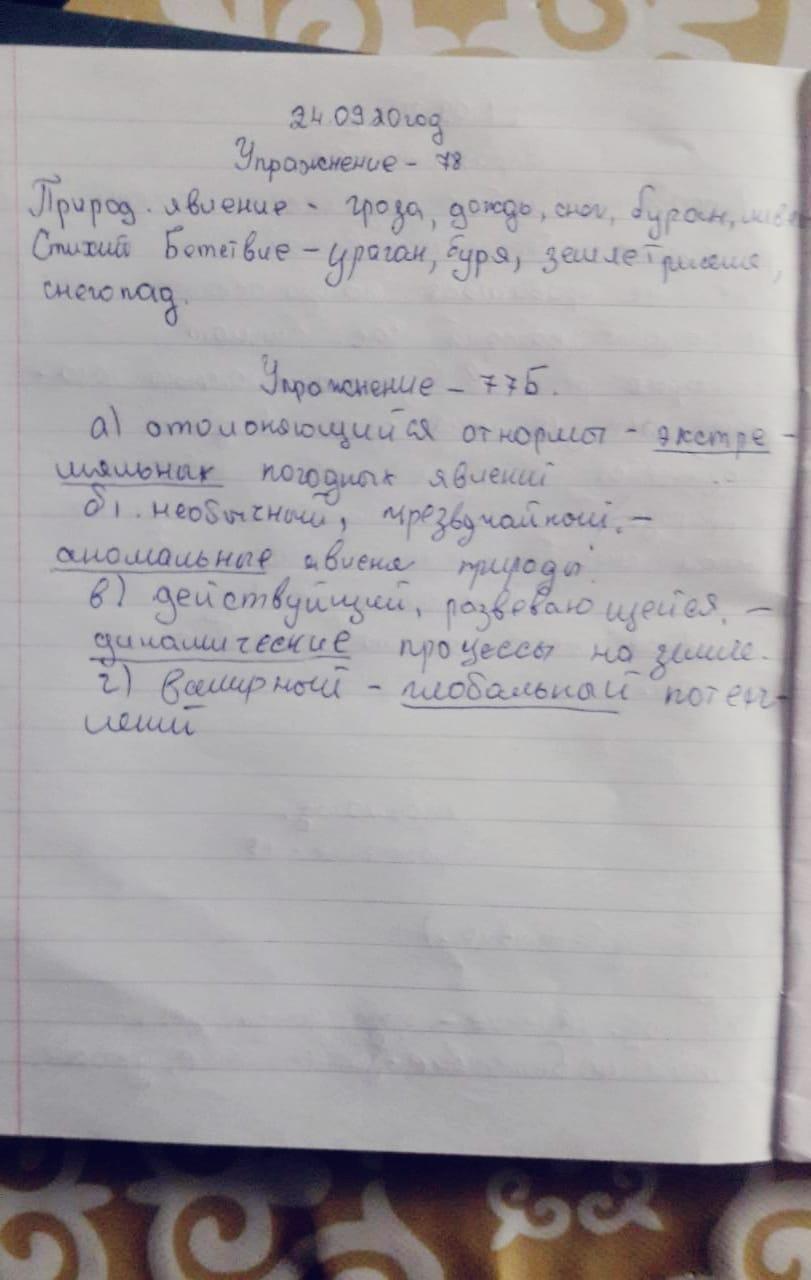 24.09.20год
Упражнение - 78
Природ. явление - гроза, дождь, снег, буран,
Стихий Бетствие - ураган, буря,
снегопад.
Упражнение - 77Б.
а) отолоняющийся от нормы - экстре -
мяльных погодных явлений
б). необычный, чрезвучайный. -
аномальные явиеня природы
в) действуйщий, развевающейся, -
динамические процессы на земле.
г) всемирный - глобальный потеп-
лений